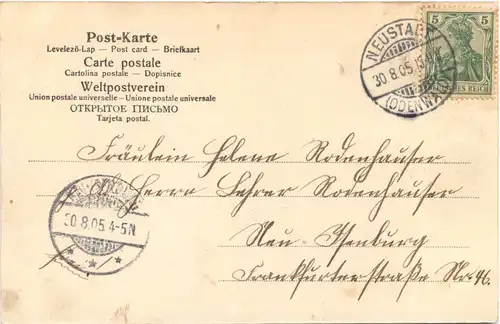 Post-Karte
Levelező-Lap — Post card — Briefkaart
Carte postale
Cartolina postale — Dopisnice
Weltpostverein
Union postale universelle - Unione postale universale
ОТКРЫТОЕ ПИСЬМО
Tarjeta postal.
5 5
DEUTSCHES REICH
NEUSTADT
30.8.05
(ODENWALD)
Fräulein Helene Rodenhauser
Herrn Lehrer Rodenhauser
30.8.05.4-5N
Neu-Isenburg
Frankfurterstraße Nr. 46.